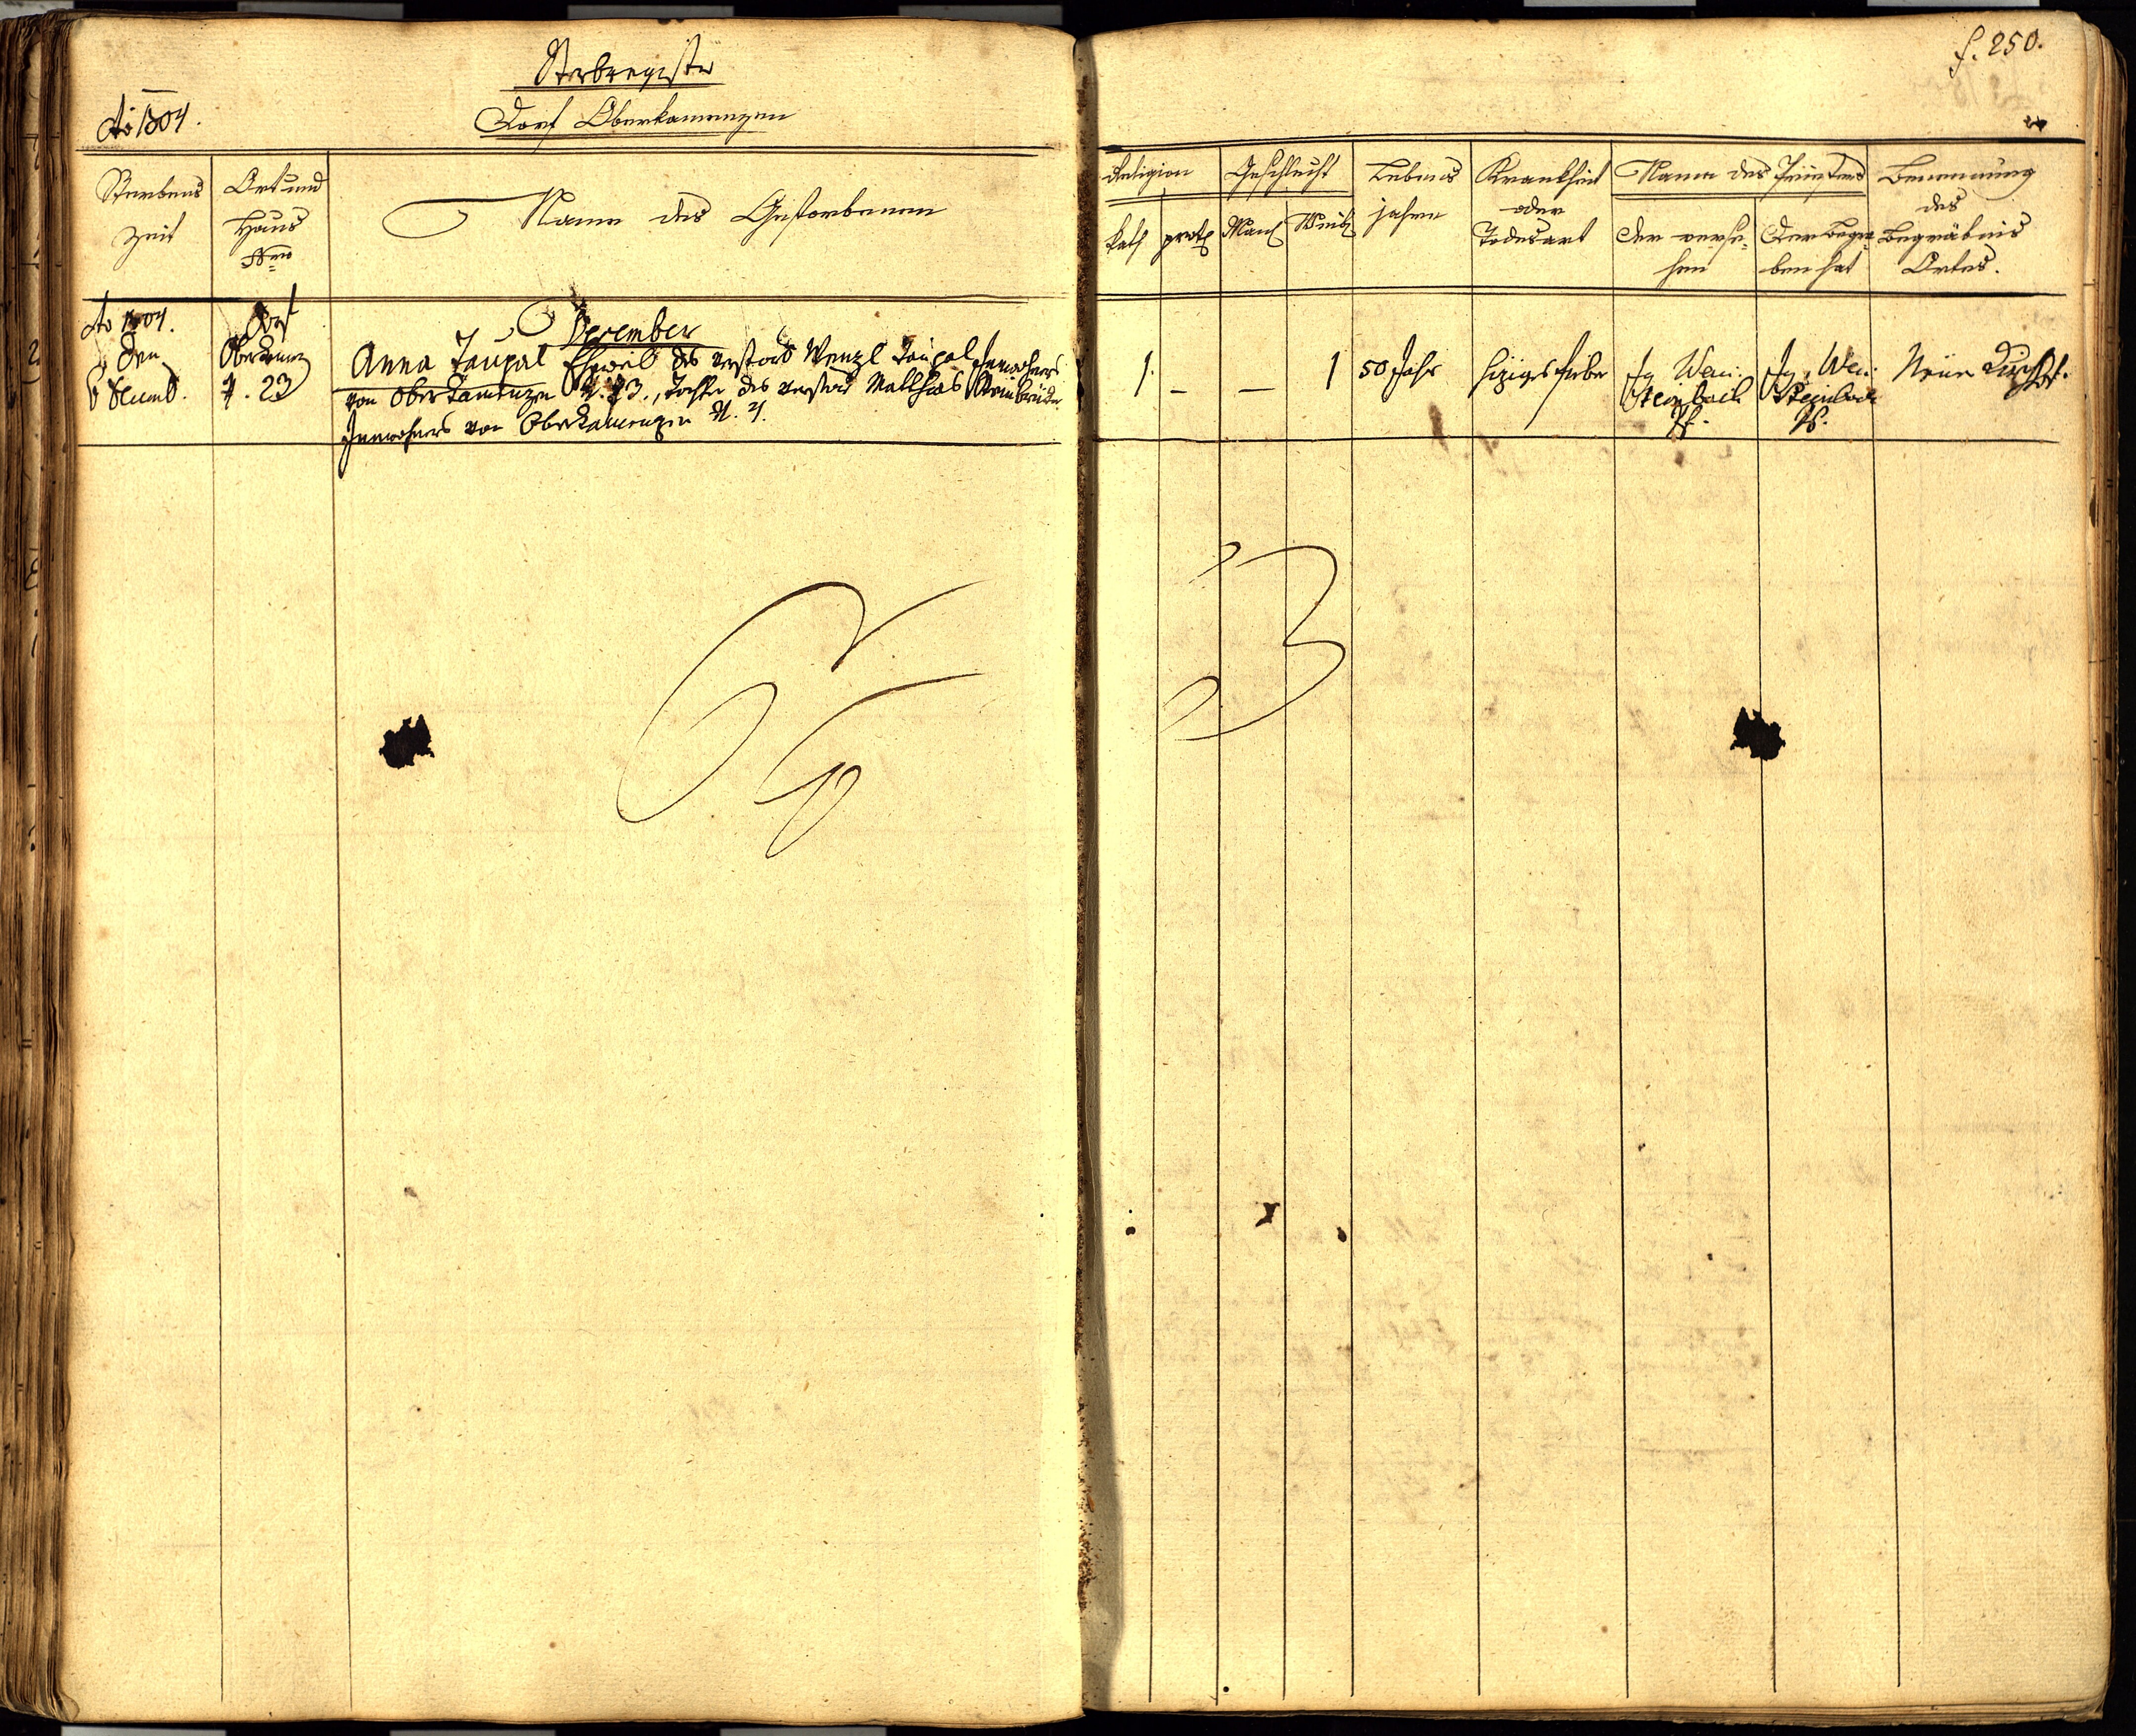 Sterbregister
Ao 1804.
Dorf Oberkamenzen
f. 250.
Sterbens
Zeit
Ort und
Haus
Nro
Name des Gestorbenen
Religion
kath
prot
Geschlecht
Mänl
Weibl
Lebens
jahre
Krankheit
oder
Todesart
Name des Priesters
der verse-
hen
der begra-
ben hat
Benennung
des
Begräbnis
Ortes.
Ao 1804.
den
6 Decemb.
Dorf
Oberkamenz
N. 23
December
Anna Taupal Eheweib des verstorb Wenzl Taupal Inwohners
von Oberkamenzen N. 23., Tochter des verstorb Mathias
Inwohners von Oberkamenzen N. 4.
1. – – 1
50 Jahr
hiziges Fieber
Steinbach
Pf.
Steinbach
Pf.